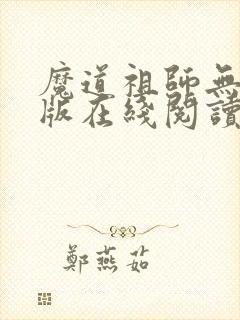 魔道祖師無
版在綫閱讀
鄭燕茹